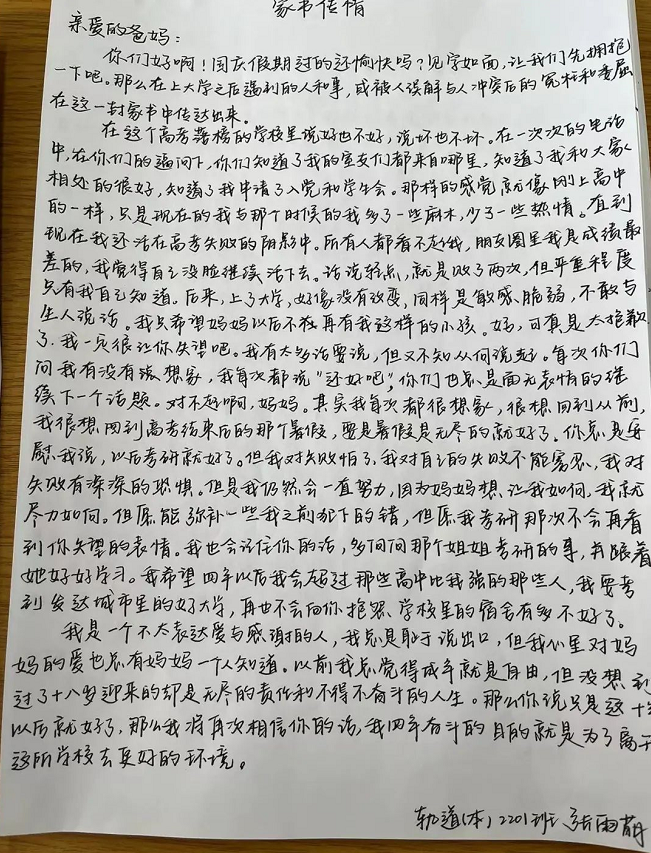 家书传情
亲爱的爸妈：
你们好啊！国庆假期过的还愉快吗？见字如面，让我们先拥抱
一下吧。那么在上大学之后遇到的人和事，或被人误解与人冲突后的冤枉和委屈
在这一封家书中传达出来。
在这个高考落榜的学校里说好也不好，说坏也不坏。在一次次的电话
中，在你们的逼问下，你们知道了我的室友们都来自哪里，知道了我和大家
相处的很好，知道了我申请了入党和学生会。那样的感觉就像刚上高中
的一样，只是现在的我与那个时候的我多了一些麻木，少了一些热情。直到
现在我还活在高考失败的阴影中。所有人都看不起我，朋友圈里我是成绩最
差的，我觉得自己没脸继续活下去。话说轻点，就是败了两次，但严重程度
只有我自己知道。后来，上了大学，好像没有改变，同样是敏感脆弱，不敢与
生人说话。我只希望妈妈以后不在再有我这样的小孩。妈，可真是太抱歉
了，我一定很让你失望吧。我有太多话要说，但又不知从何说起。每次你们
问我有没有很想家，我每次都说“还好吧”，你们也总是面无表情的继
续下一个话题。对不起啊，妈妈。其实我每次都很想家，很想回到从前，
我很想回到高考结束后的那个暑假，要是暑假是无尽的就好了。你总是安
慰我说，以后考研就好了。但我对失败怕了，我对自己的失败不能容忍，我对
失败有深深的恐惧。但是我仍然会一直努力，因为妈妈想让我如何，我就
尽力如何。但愿能弥补一些我之前犯下的错，但愿我考研那次不会再看
到你失望的表情。我也会记住你的话，多问问那个姐姐考研的事，并跟着
她好好学习。我希望四年以后我会超过那些高中比我强的那些人，我要考
到发达城市里的好大学，再也不会向你抱怨学校里的宿舍有多不好了。
我是一个不太表达爱与感谢的人，我总是耻于说出口，但我心里对妈
妈的爱也总有妈妈一个人知道。以前我总觉得成年就是自由，但没想到
过了十八岁迎来的却是无尽的责任和不得不奋斗的人生。那么你说只是这十年
以后就好了，那么我将再次相信你的话，我四年奋斗的目的就是为了离开
这所学校去更好的环境。
轨道(本)2201班 张雨萌